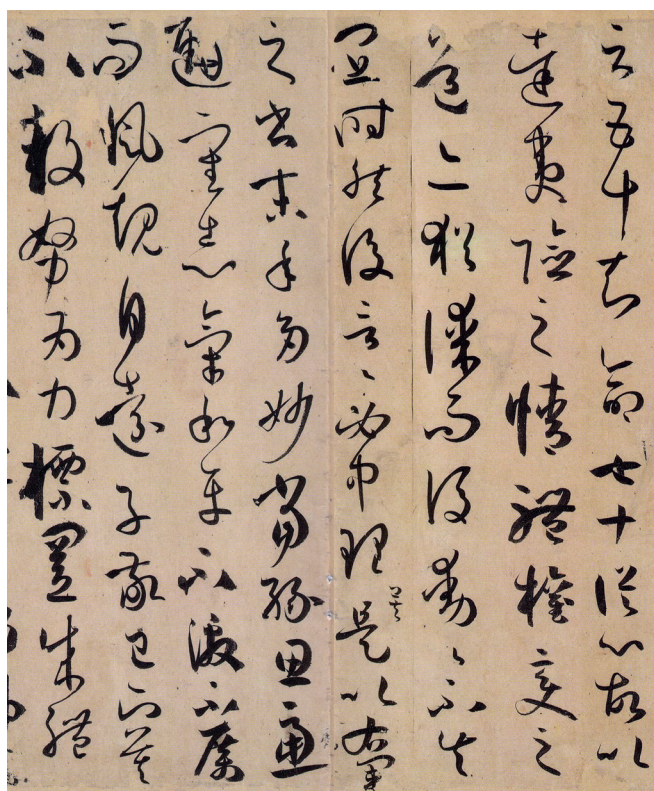 云五十知命七十從心故以
達夷險之情體權變之
道亦猶謀而後動々不失
宜時然後言々必中理矣是以右軍
之書末年多妙當緣思慮
通審志氣和平不激不厲
而風規自遠子敬已下莫
不鼓努為力標置成體